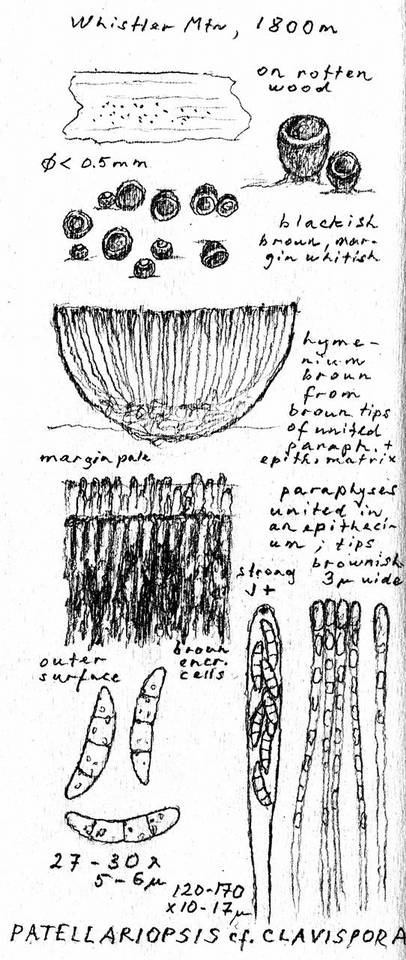 Whistler Mtn, 1800m
on rotten
wood
Ø < 0.5mm
blackish
brown, mar-
gin whitish
hyme-
nium
brown
from
brown tips
of united
paraph. +
epith. matrix
margin pale
paraphyses
united in
an epitheci-
um; tips
brownish
3µ wide
strong
J+
outer
surface
brown
encr.
cells
27-30 x
5-6µ
120-170
x10-17µ
PATELLARIOPSIS cf. CLAVISPORA